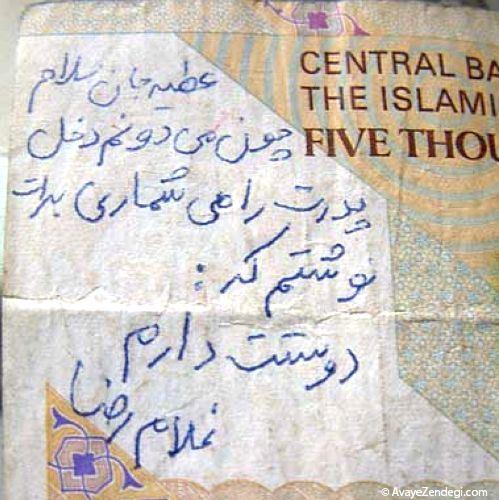 عطیه جان سلام
چون می دونم دخل
پدرت را می شماری برات
نوشتم که :
دوستت دارم
غلام رضا
CENTRAL BA
THE ISLAMI
FIVE THOU
© AvayeZendegi.com